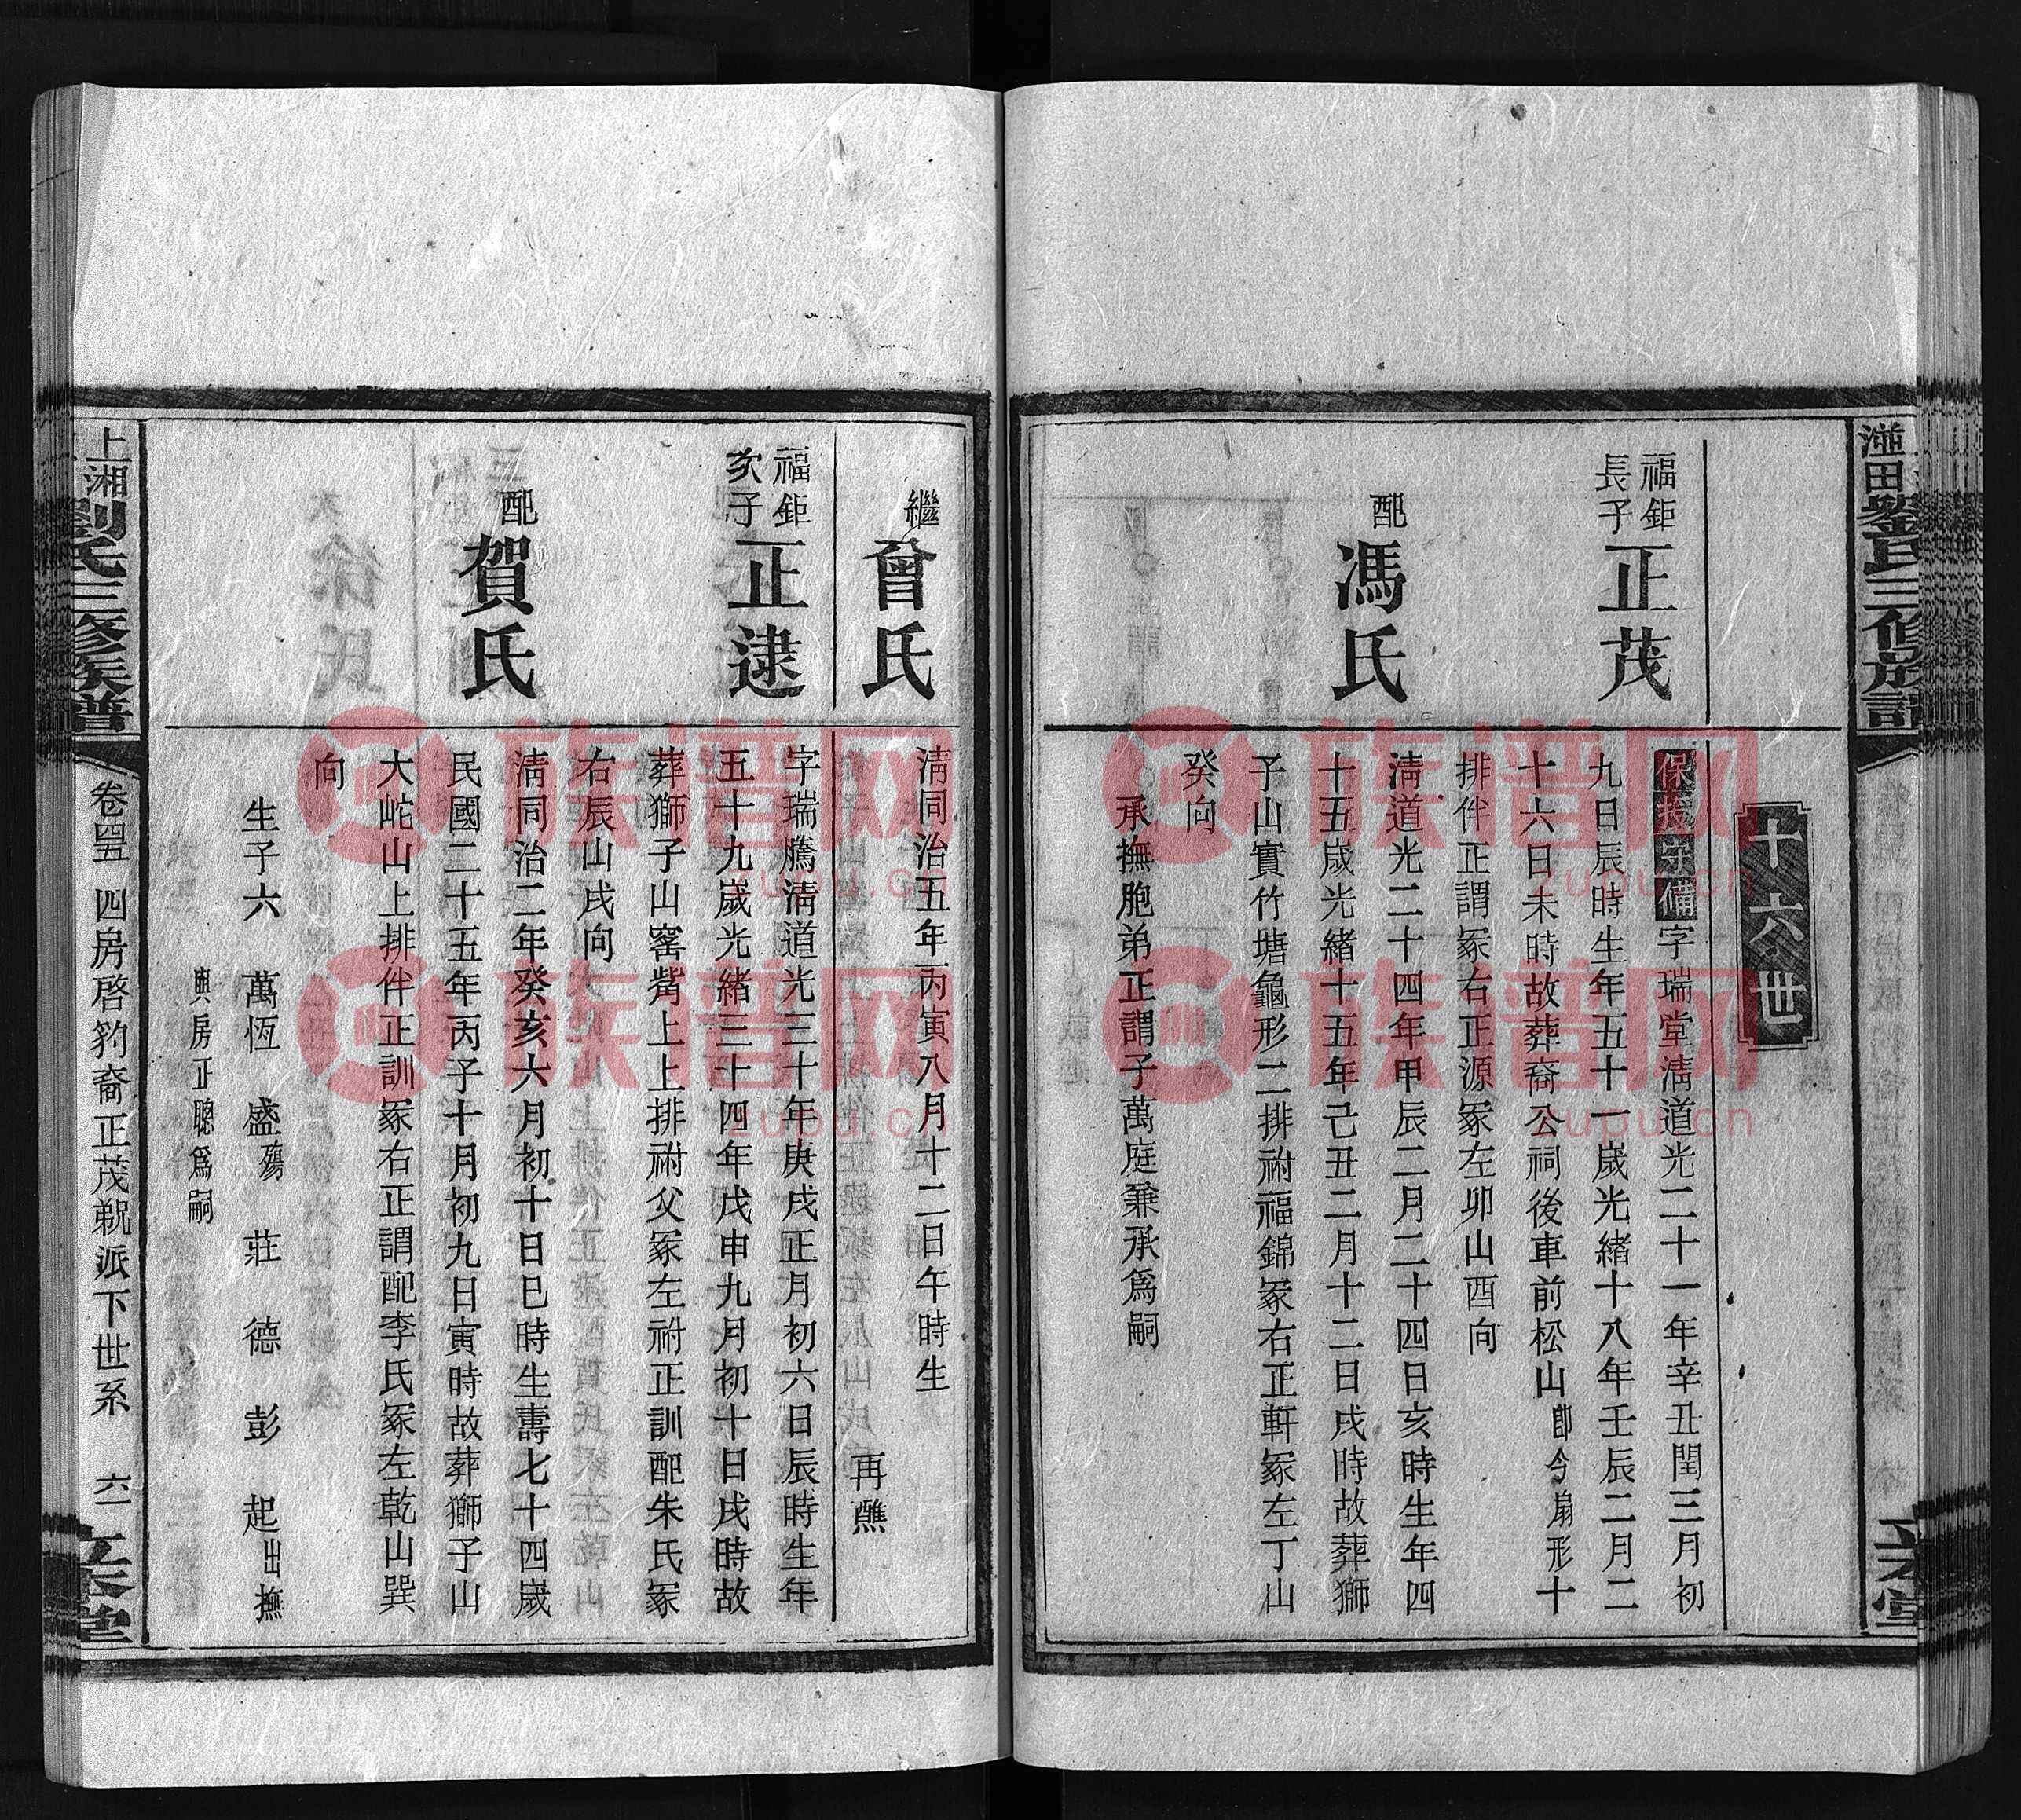 十六世
福鉅
長子
正茂
保授守備字瑞堂淸道光二十一年辛丑閏三月初
九日辰時生年五十一歲光緒十八年壬辰二月二
十六日未時故葬裔公祠後車前松山卽今扇形十
排伴正謂冢右正源冢左卯山酉向
配
馮氏
淸道光二十四年甲辰二月二十四日亥時生年四
十五歲光緒十五年己丑二月十二日戌時故葬獅
子山實竹塘龜形二排祔福錦冢右正軒冢左丁山
癸向
承撫胞弟正謂子萬庭兼承爲嗣
繼
曾氏
淸同治五年丙寅八月十二日午時生
再醮
福鉅
次子
正逮
字瑞騰淸道光三十年庚戌正月初六日辰時生年
五十九歲光緒三十四年戊申九月初十日戌時故
葬獅子山窰觜上上排祔父冢左祔正訓配朱氏冢
右辰山戌向
配
賀氏
淸同治二年癸亥六月初十日巳時生壽七十四歲
民國二十五年丙子十月初九日寅時故葬獅子山
大岮山上排伴正訓冢右正謂配李氏冢左乾山巽
向
生子六 萬恆 盛殤 莊 德 彭 起出撫
輿房正聰爲嗣
上湘
劉氏三修族譜
卷四五 四房啓豹裔正茂覣派下世系 六一
立本堂
湴田
劉氏三修族譜
立本堂
族谱网
zupu.cn
族谱网
zupu.cn
族谱网
zupu.cn
族谱网
zupu.cn